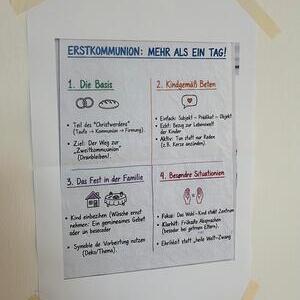 ERSTKOMMUNION: MEHR ALS EIN TAG!
1. Die Basis
• Teil des "Christwerdens"
(Taufe → Kommunion → Firmung).
• Ziel: Der Weg zur
„Zweitkommunion"
(Dranbleiben!).
2. Kindgemäß Beten
• Einfach: Subjekt - Prädikat - Objekt
• Echt: Bezug zur Lebenswelt
der Kinder
• Aktiv: Tun statt nur Reden
(z.B. Kerze anzünden).
3. Das Fest in der Familie
• Kind einbeziehen (Wünsche ernst
nehmen: Ein gemeinsames Gebet
oder
• Symbole der Vorbereitung nutzen
(Deko/Thema).
4. Besondre Situationien
• Fokus: Das Wohl-Kind steht Zentrum
• Klarheit: Frühzeite Absprachen
(besoder bei getrnen Eltern).
• Ehrlihkeit statt „heile Welt"-Zwang